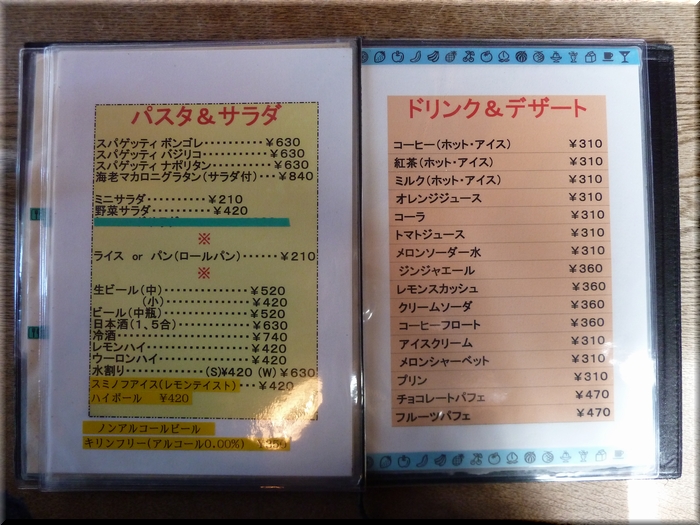 パスタ＆サラダ
スパゲッティ ボンゴレ･･････････￥630
スパゲッティ バジリコ･･････････￥630
スパゲッティ ナポリタン････････￥630
海老マカロニグラタン(サラダ付)･･･￥840
ミニサラダ･･････････￥210
野菜サラダ･･････････￥420
※
ライス or パン(ロールパン)･･････￥210
※
生ビール(中)････････････￥520
(小)････････････￥420
ビール(中瓶)････････････￥520
日本酒(1､5合)･･････････￥630
冷酒･･････････････････￥740
レモンハイ･･････････････￥420
ウーロンハイ････････････￥420
水割り･･････････(S)￥420 (W)￥630
スミノフアイス(レモンテイスト)･･･￥420
ハイボール ￥420
ノンアルコールビール
キリンフリー(アルコール0.00%) ￥350
ドリンク＆デザート
コーヒー(ホット･アイス) ￥310
紅茶(ホット･アイス) ￥310
ミルク(ホット･アイス) ￥310
オレンジジュース ￥310
コーラ ￥310
トマトジュース ￥310
メロンソーダー水 ￥310
ジンジャエール ￥360
レモンスカッシュ ￥360
クリームソーダ ￥360
コーヒーフロート ￥360
アイスクリーム ￥310
メロンシャーベット ￥310
プリン ￥310
チョコレートパフェ ￥470
フルーツパフェ ￥470